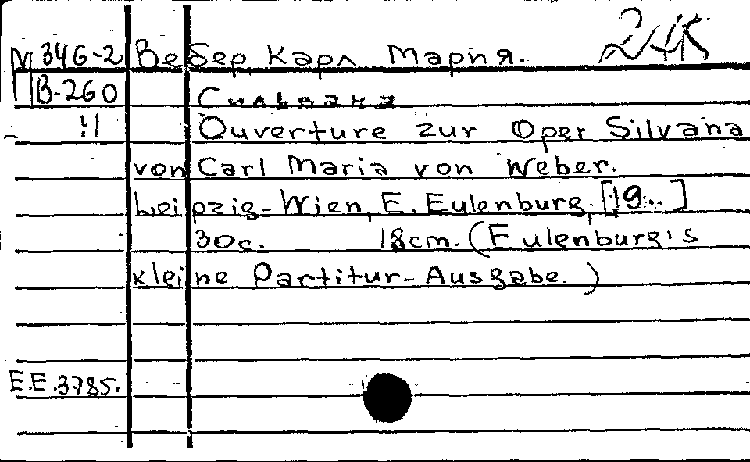 М 346-2 Вебер, Карл Мария.
В-260 Сильвана
Ouverture zur Oper Silvana
von Carl Maria von Weber.
Leipzig-Wien, E. Eulenburg. [19..]
30c. 18cm. (Eulenburg's
kleine Partitur-Ausgabe.)
E.E.3785.